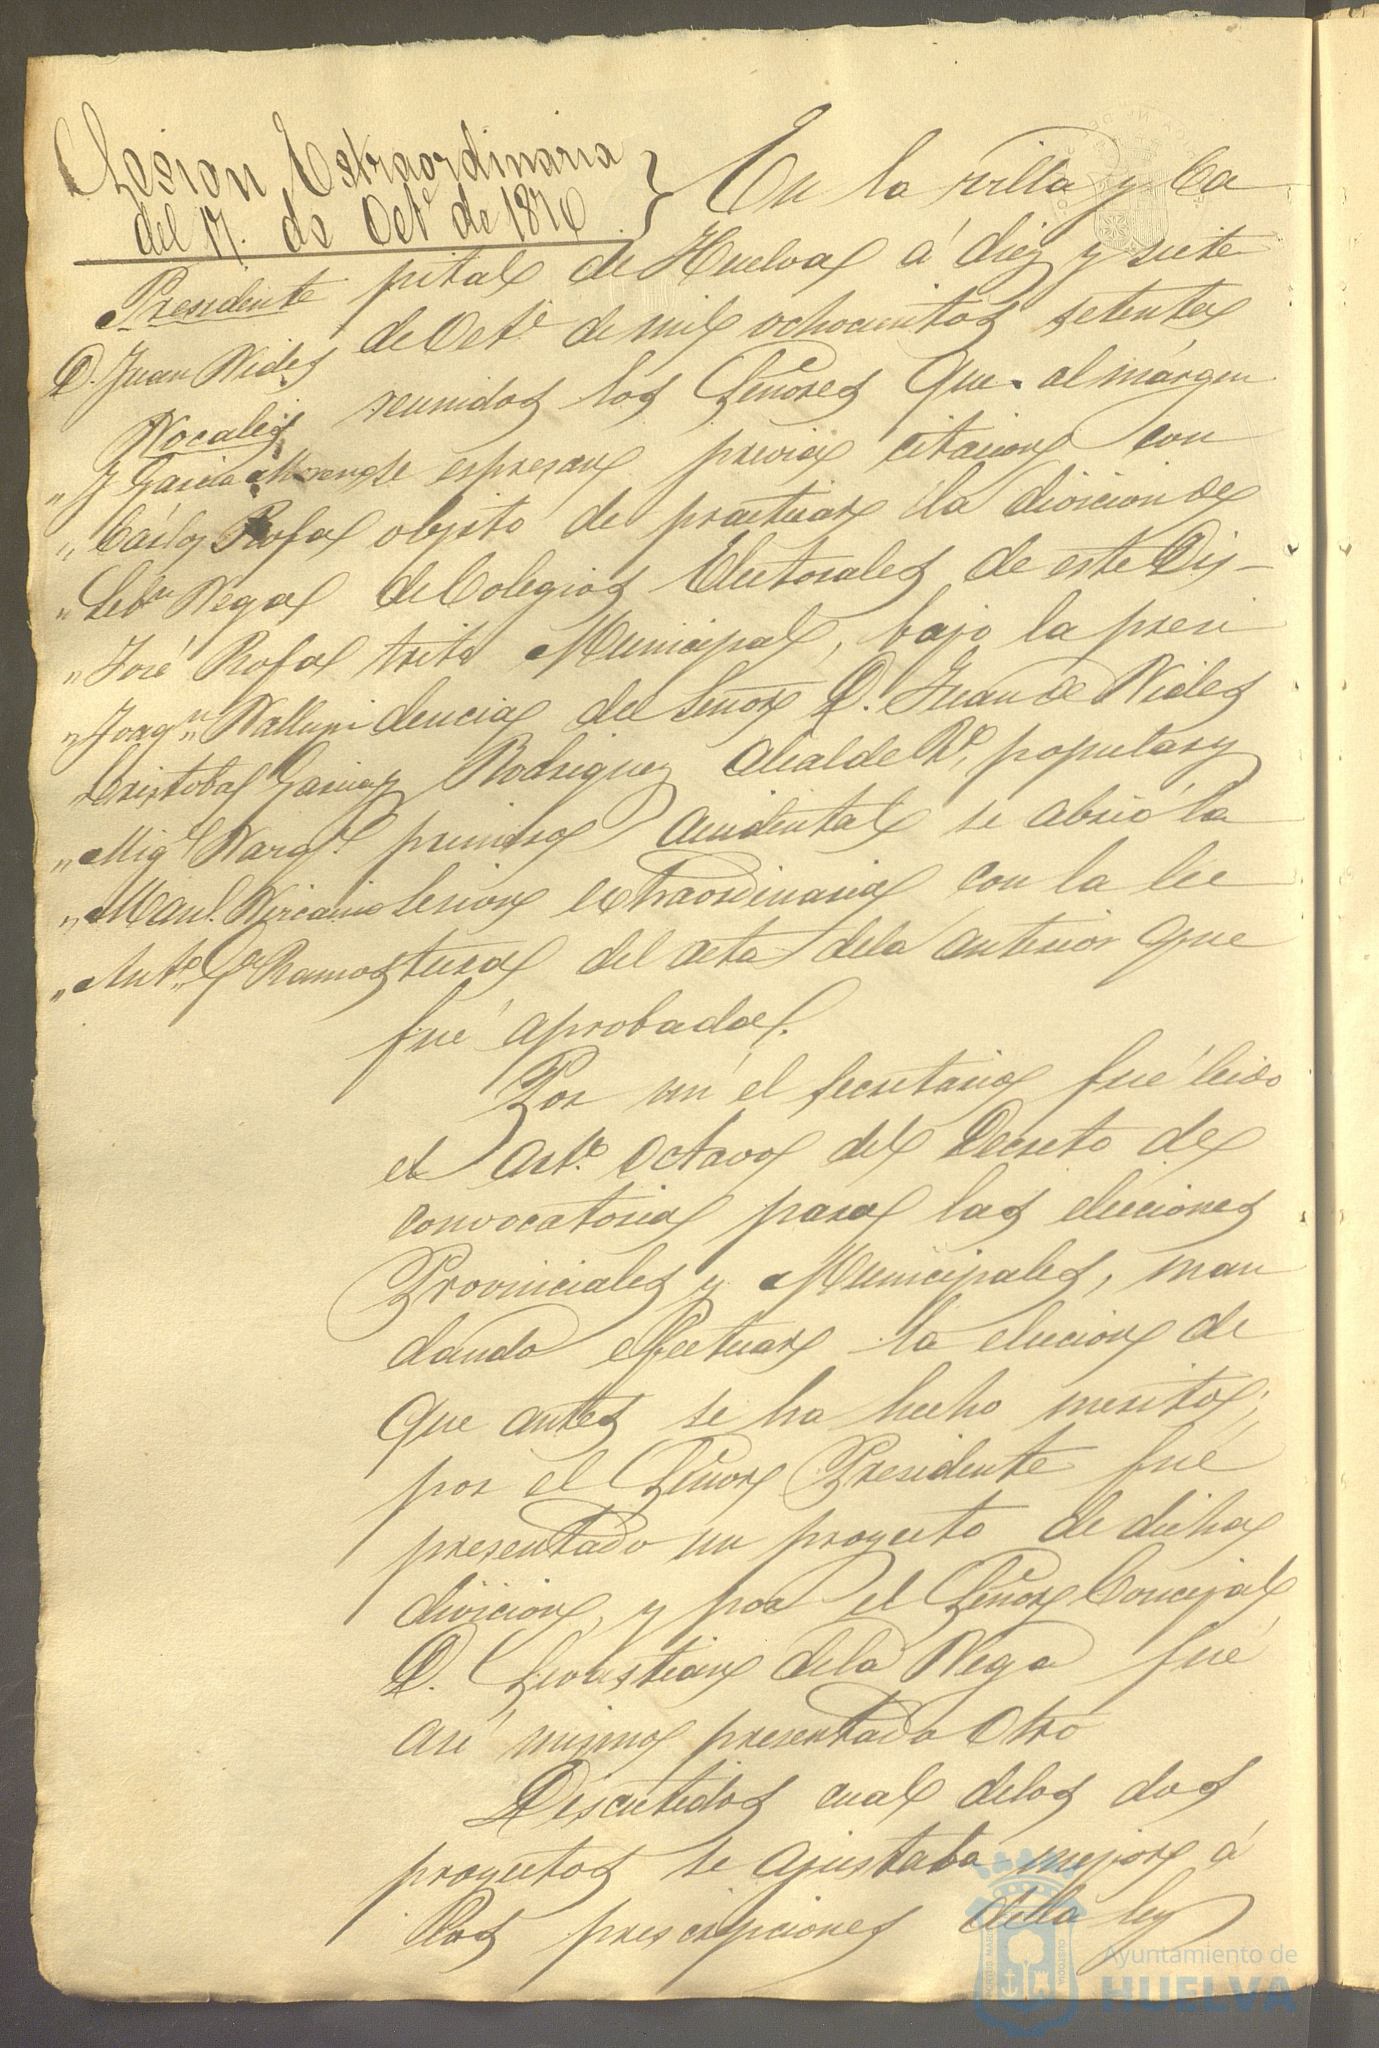 Sesion Estraordinaria
del 17. de Octe de 1870
Presidente
D. Juan Vides
Vocales
" J Garcia Moreno
" Cárlos Rofa
" Sebn Vega
" José Rofa
" Joaqn
" Cristobal Garcia
" Migl Vargs
" Manl. Vizcaino
" Anto Ga Ramos
En la villa y Ca
pital de Huelva á diez y siete
de Octe de mil ochocientos setenta
reunidos los Señores que al márgen
se espresan previa citacion con
objeto de practicar la division de
de Colegios Electorales de este Dis-
trito Municipal, bajo la presi
dencia del Señor D. Juan de Vides
Rodriguez Alcalde Po popular y
primero accidental se abrió la
sesion extraordinaria con la lec
tura del acta dela anterior que
fué aprobada.
Por mi el secretario fué leido
el arto. octavo del Decreto de
convocatoria para las elecciones
Provinciales y Municipales, man
dando efectuar la eleccion de
que antes se ha hecho merito;
por el Señor Presidente fué
presentado un proyecto de dicha
division, y por el Señor Concejal
D. Sevastian dela Vega fué
asi mismo presentado otro
Discutidos cual delos dos
proyectos se ajustaba mejor á
las prescripciones dela ley
Ayuntamiento de
HUELVA